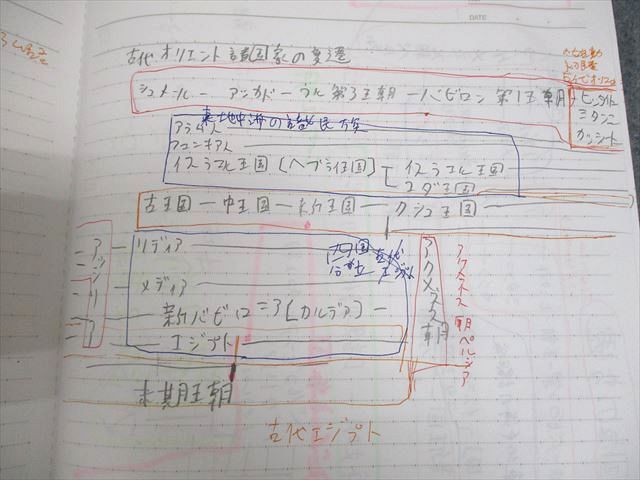 DATE
古代オリエント諸国家の変遷
シュメール ー アッカド ー ウル第3王朝 ー バビロン第1王朝
ヒッタイト
ミタンニ
カッシート
東地中海の諸民族
アラム人
フェニキア人
イスラエル王国 [ヘブライ王国] イスラエル王国
ユダ王国
古王国 ー 中王国 ー 新王国 ー クシュ王国
アッシリア
リディア
四国分立
古代
メディア
新バビロニア [カルデア] ー
エジプト
アケメネス朝
アケメネス朝ペルシア
末期王朝
古代エジプト